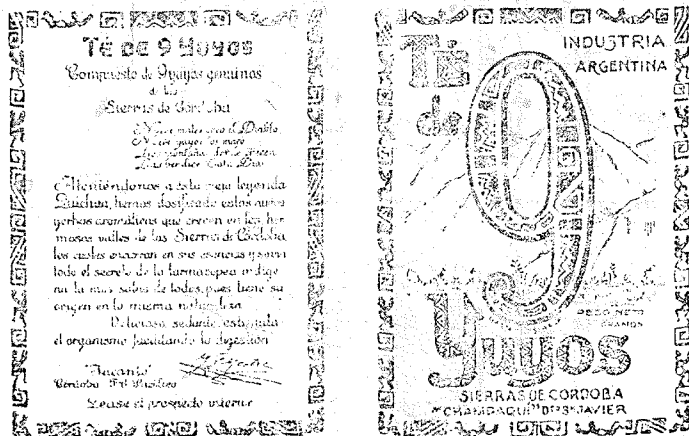 TÉ DE 9 YUYOS
Compuesto de 9 yuyos genuinos
de las
Sierras de Córdoba
Diablo,
Ateniéndonos a esta vieja leyenda
Quichua, hemos dosificado estas nueve
yerbas aromáticas que crecen en los her
mosos valles de las Sierras de Córdoba
los cuales encierran en sus esencias y savia
todo el secreto de la farmacopea indíge
na la mas sabia de todas, pues tiene su
origen en la misma naturaleza
Delicioso, sedante, estimula
el organismo facilitando la digestión
"Aucanto"
Córdoba
Léase el prospecto interno
Té
de
9
Yuyos
INDUSTRIA
ARGENTINA
PESO NETO
GRAMOS
SIERRAS DE CORDOBA
"CHAMPAQUI" DTO. Sn. JAVIER